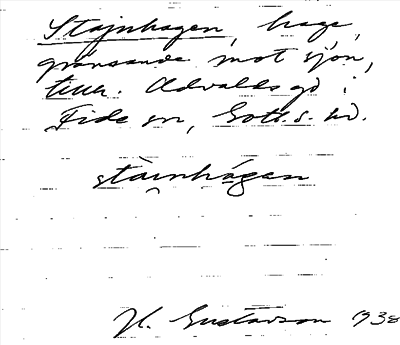 Stajnhagen, hage,
gränsande mot sjön,
till. Odvalds gd i
Fide sn, Gotl. s. hd.
stàinhágan
H. Gustavson 1938